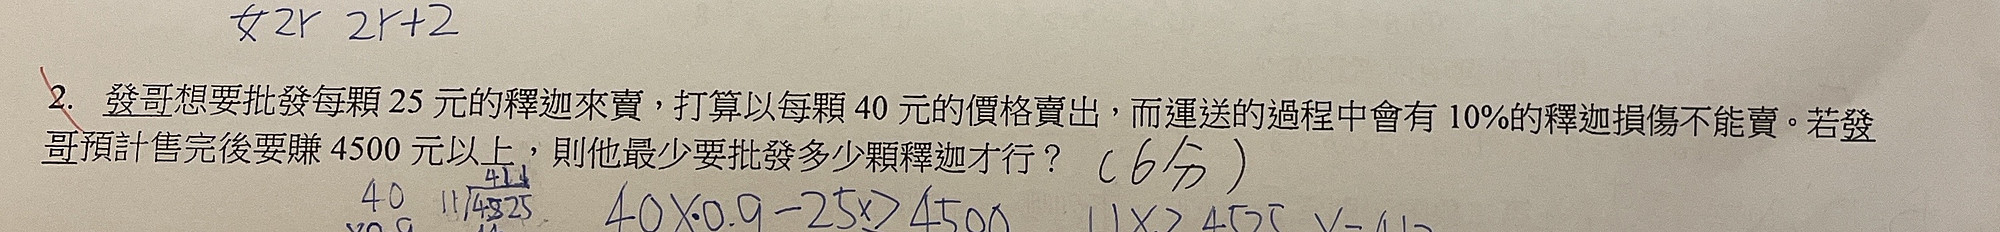 女2r 2r+2
2. 發哥想要批發每顆 25 元的釋迦來賣，打算以每顆 40 元的價格賣出，而運送的過程中會有 10%的釋迦損傷不能賣。若發
哥預計售完後要賺 4500 元以上，則他最少要批發多少顆釋迦才行？（6分）
40 411
11 4525 40x·0.9-25x≥4500 11x≥4525